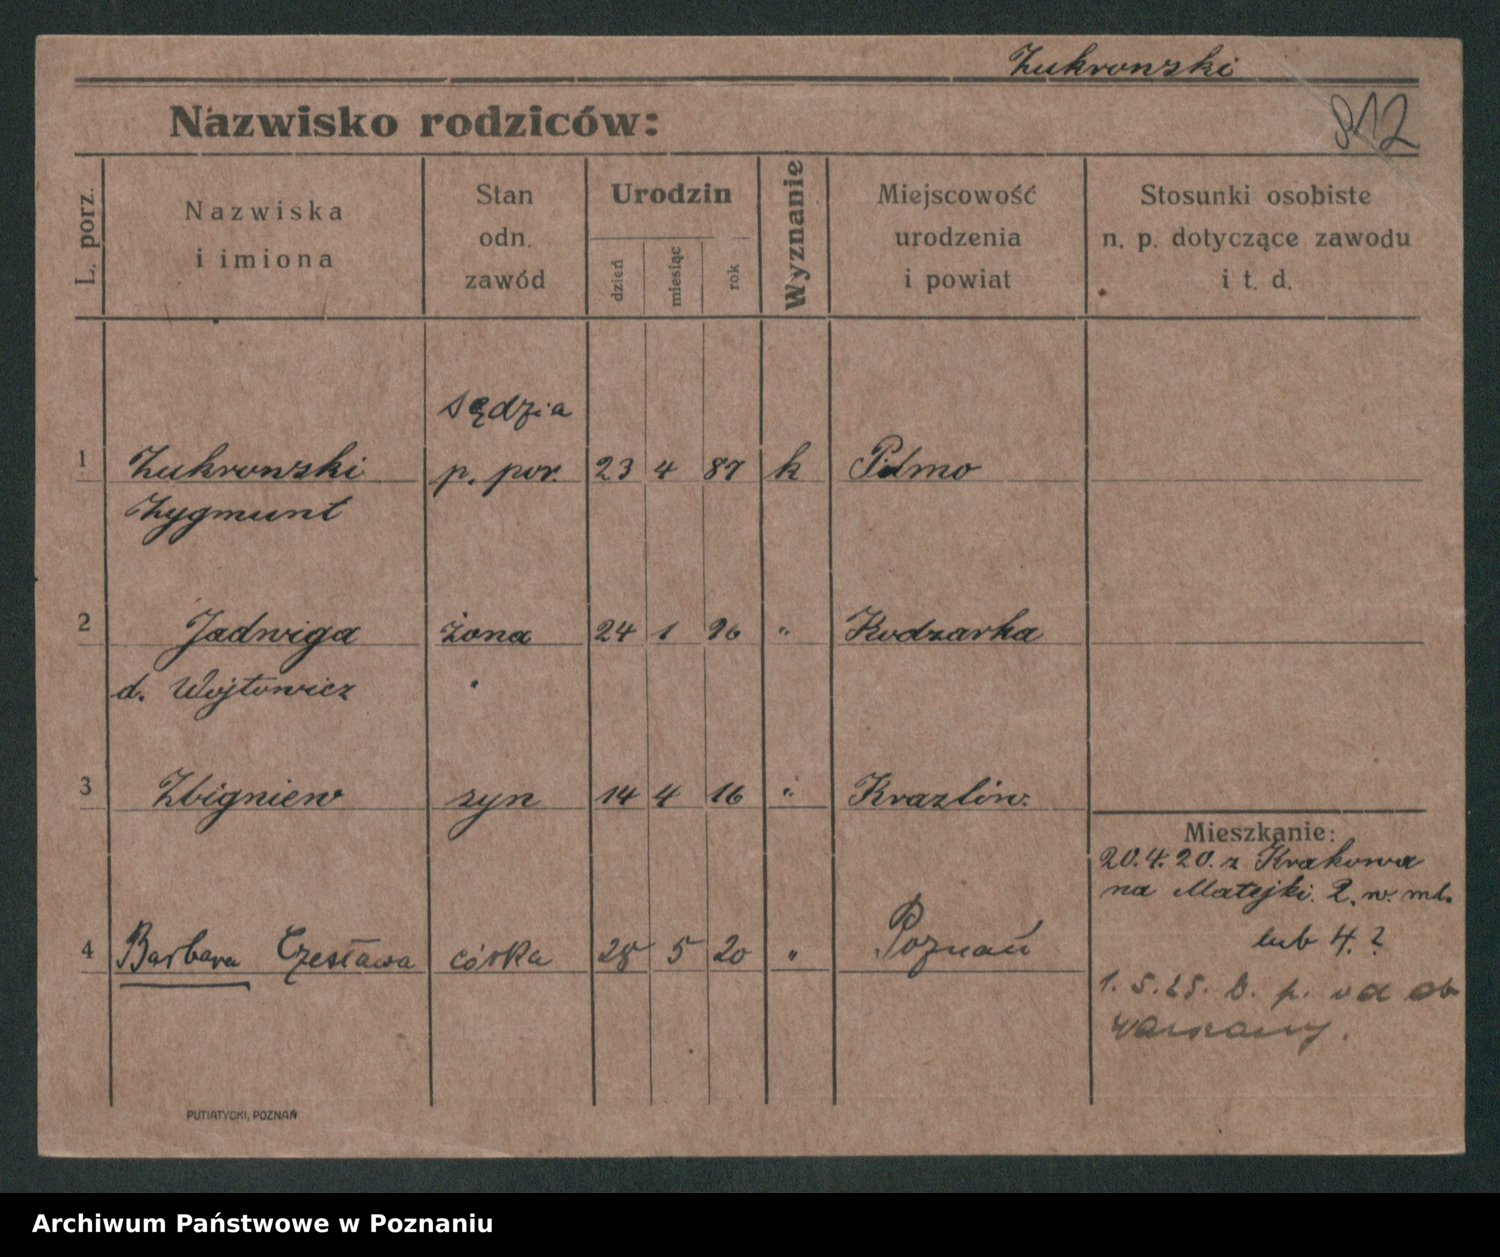 Żukrowski
Nazwisko rodziców:
912
L. porz.
Nazwiska
i imiona
Stan
odn.
zawód
Urodzin
dzień
miesiąc
rok
Wyznanie
Miejscowość
urodzenia
i powiat
Stosunki osobiste
n. p. dotyczące zawodu
i t. d.
sędzia
1 Żukrowski p. por. 23 4 87 k
Zygmunt
2 Jadwiga żona 24 1 96 " Kodzarka
d. Wojtowicz
3 Zbigniew syn 14 4 16 "
Mieszkanie:
20.4.20. z Krakowa
na Matejki. 2. w. mb.
lub 4.?
4 Barbara Czesława córka 28 5 20 " Poznań
1. 5.25.
Warszawy.
PUTIATYCKI, POZNAŃ
Archiwum Państwowe w Poznaniu